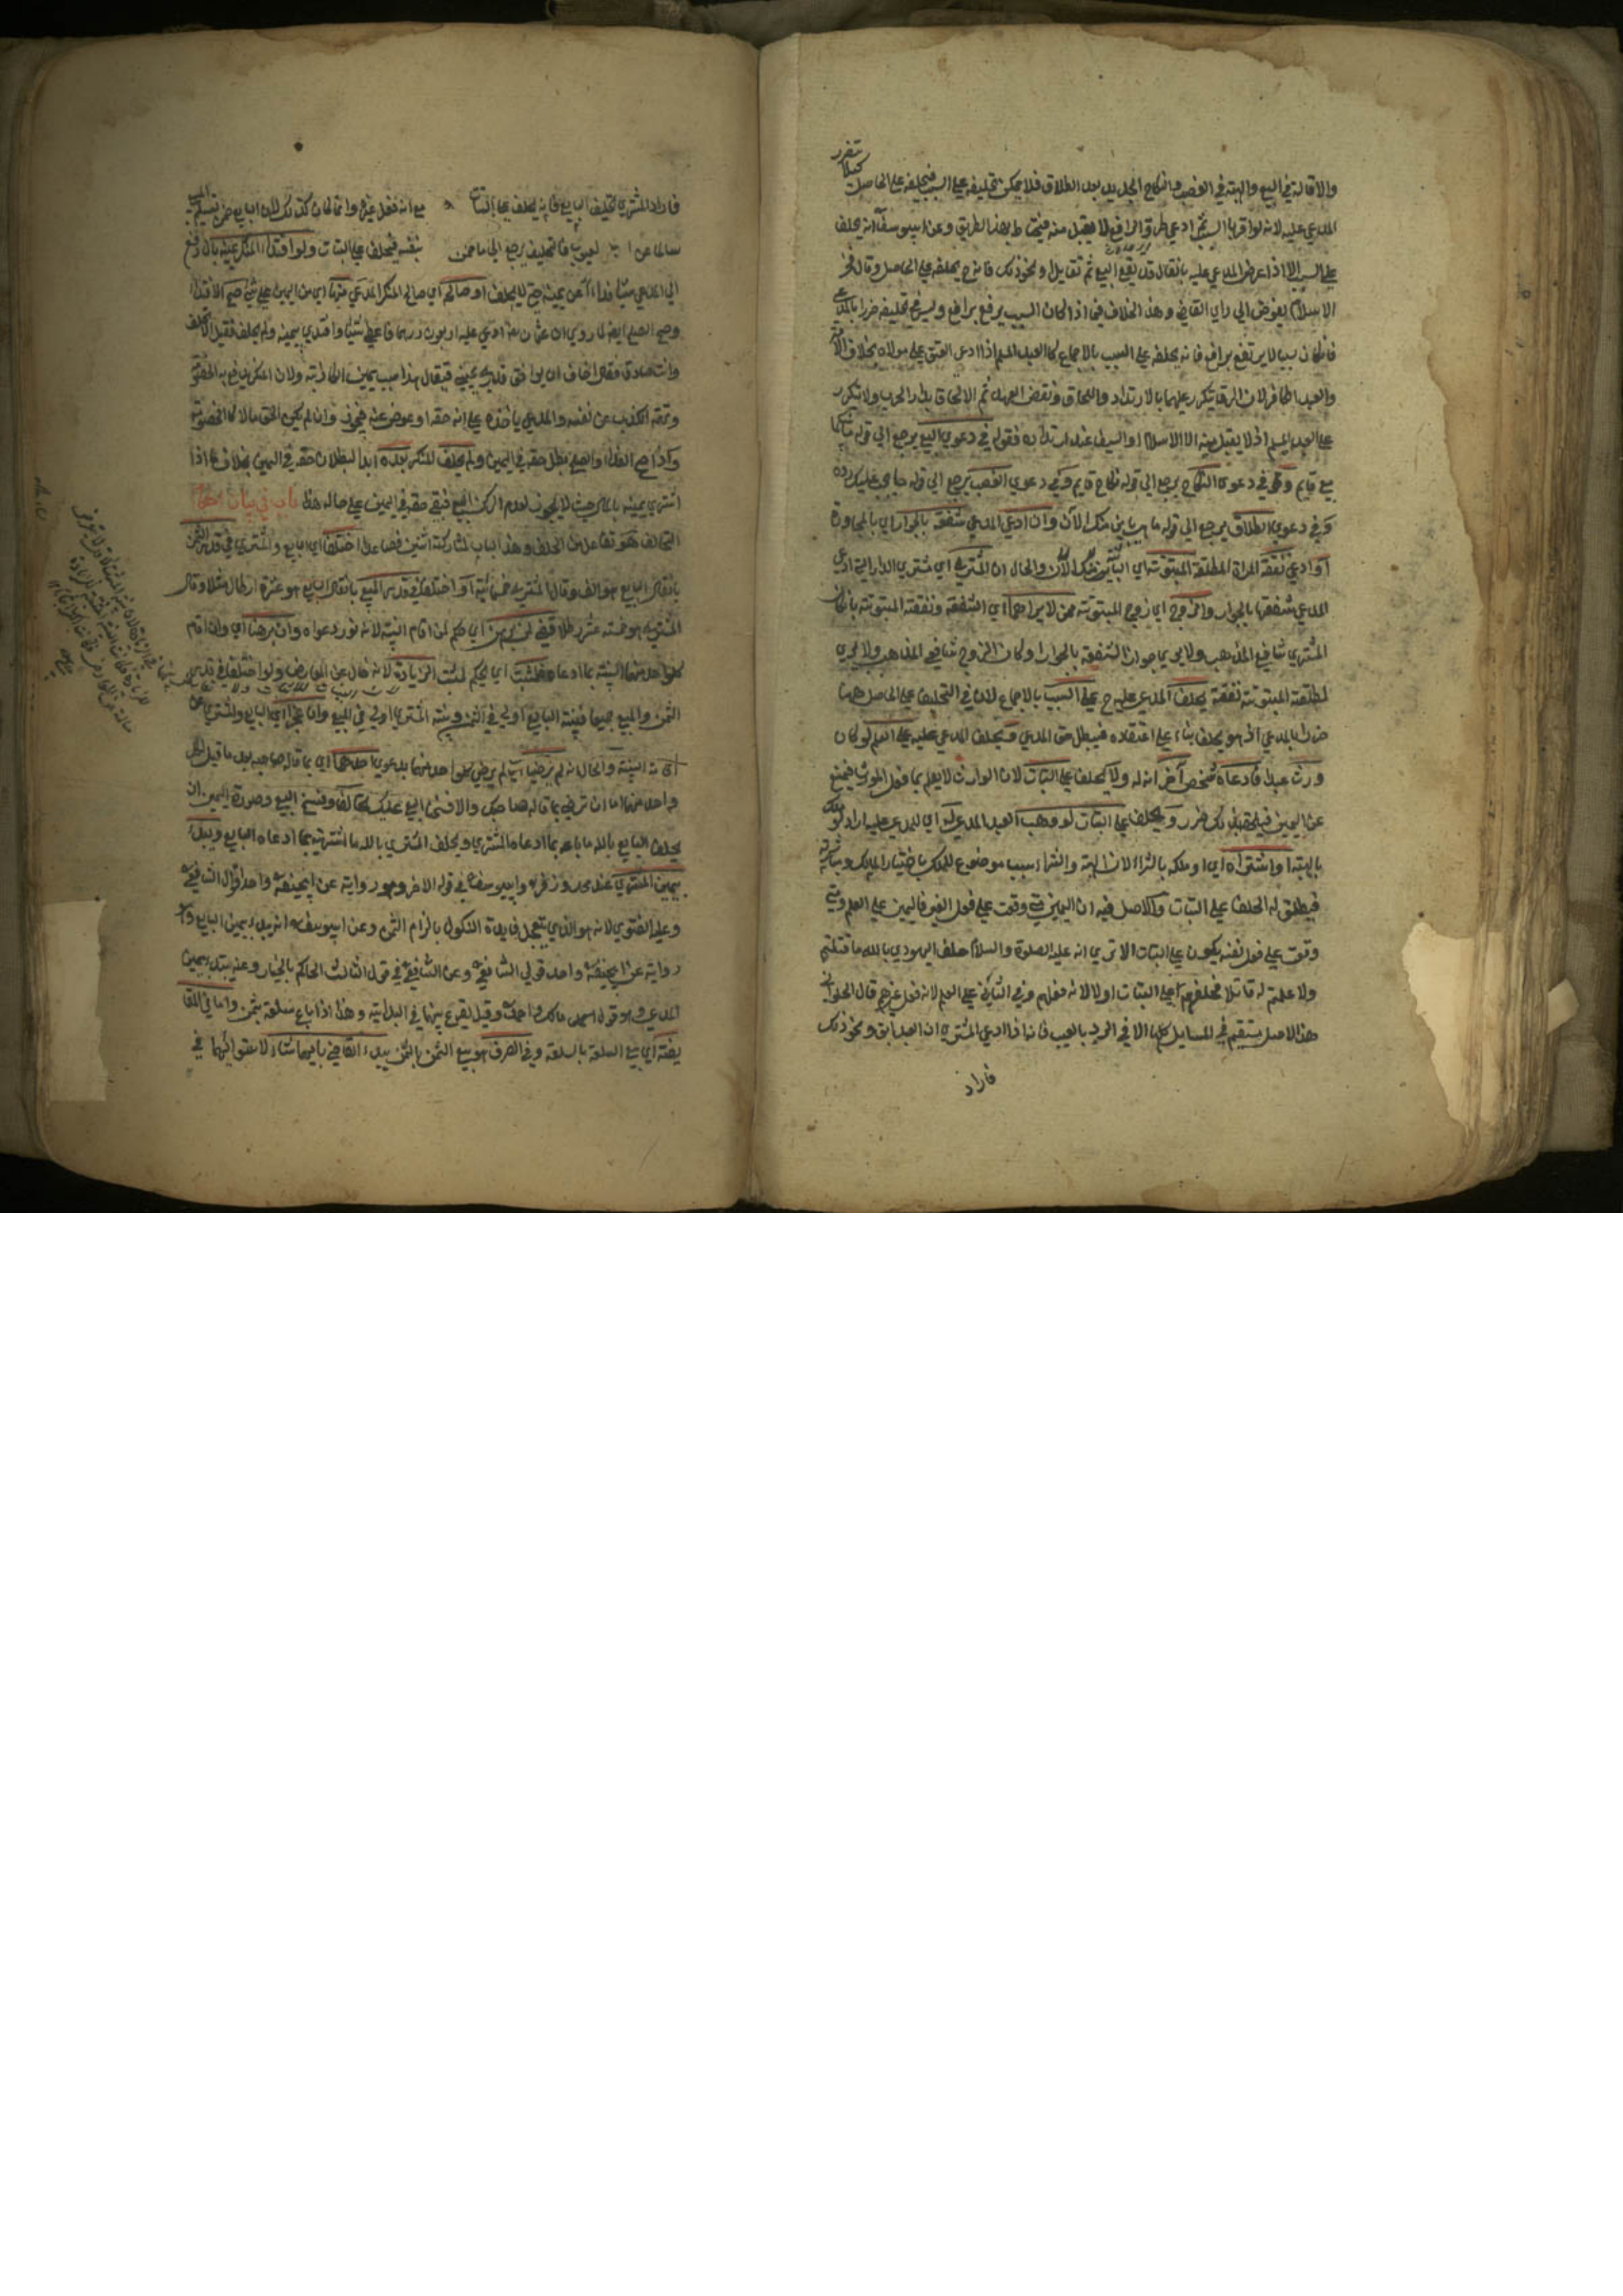 والاقالة في البيع والهبة في الغصب والنكاح الجديد بعد الطلاق فلا يمكن تحليفه على السبب فيحلفه على الحاصل كيلا يتضرر
المدعي عليه لانه لو اقر بالسبب ثم ادعي طرو الرافع لا يقبل منه فيحتاط بهذا الطريق وعن ابي يوسف انه يحلف
على السبب الا اذا عرض المدعي عليه بان قال قد يقع البيع ثم تقايل او نحو ذلك فانه ح يحلفه على الحاصل وقال فخر
الاسلام يفوض الي راي القاضي وهذا الخلاف فيما اذا كان السبب يرفع برافع وليس في تحليفه ضرر بالمدعي
فان كان سببا لا يرتفع برافع فانه يحلفه على السبب بالاجماع كالعبد المسلم اذا ادعى العتق على مولاه بخلاف الامة
والعبد الكافر لان الرق يتكرر عليهما بالارتداد واللحاق ونقض العهد ثم الالحاق بدار الحرب ولا يتكرر
على العبد المسلم اذ لا يقبل منه الا الاسلام او السيف عند ارتداده فقوله في دعوي البيع يرجع الي قوله ما بينكما
بيع قايم وقوله في دعوى النكاح يرجع الى قوله نكاح قايم وفي دعوي الغصب يرجع الي قوله ما يجب عليك رده
وفي دعوى الطلاق يرجع الي قوله ما هي باين منك الآن وان ادعي المدعي شفعة بالجوار اي بالمجاورة
او ادعي نفقة المراة المطلقة المبتوتة اي الباين والحال ان المشتري اي مشتري الدار التي ادعى
المدعي شفعتها بالجوار والزوج اي زوج المبتوتة ممن لا يراهما اي الشفعة ونفقة المبتوتة بان كان
المشتري شافعي المذهب ولا يري جواز الشفعة بالجوار او كان الزوج شافعي المذهب ولا يري
لمطلقته المبتوتة نفقة يحلف المدعي عليه ح على السبب بالاجماع لان في التحليف على الحاصل ههنا
ضررا بالمدعي اذ هو يحلف بناء على اعتقاده فيبطل حق المدعي ويحلف المدعي عليه على العلم لو كان
ورث عبدا فادعاه شخص آخر انه له ولا يحلف على البتات لان الوارث لا يعلم بما فعل المورث فيمتنع
عن اليمين فيلحقه بذلك ضرر ويحلف على البتات لو وهب العبد المدعي له اي للمدعي عليه اراد لو ملكه
بالهبة او اشتراه اي او ملكه بالشراء لان الهبة والشراء سبب موضوع للملك باختيار المالك ومباشرته
فيطلق له الحلف على البتات والاصل فيه ان اليمين متي وقعت على فعل الغير فاليمين على العلم ومتي
وقعت على فعل نفسه يكون على البتات الا تري انه عليه الصلوة والسلام حلف اليهودي بالله ما قتلتم
ولا علمتم له قاتلا فحلفهم على البتات اولا لانه فعلهم وفي الثاني على العلم لانه فعل غيرهم قال الحلواني
هذا الاصل مستقيم في المسايل كلها الا في الرد بالعيب فانه اذا ادعي المشتري ان العبد ابق ونحو ذلك
فاراد
فاراد المشتري تحليف البايع فانه يحلف على البتات مع انه فعل غيره وانما كان كذلك لان البايع ضمن تسليم المبيع
سالما عن العيوب فالتحليف يرجع الي ما ضمن بنفسه فيحلف على البتات ولو افتدى المنكر يمينه بان دفع
الي المدعي شيئا فداء عن يمينه حتي لا يحلف او صالحه اي صالح المنكر المدعي منها اي من اليمين على شي صح الافتداء
وصح الصلح ايضا لما روي ان عثمان رضه ادعي عليه اربعون درهما فاعطى شيئا وافتدي يمينه ولم يحلف فقيل الا تحلف
وانت صادق فقال اخاف ان يوافق قدر يميني فيقال هذا بسبب يمينه الكاذبة ولان المنكر يدفع به الخصومة
وتهمة الكذب عن نفسه والمدعي ياخذه على انه حقه او عوض عنه فيجوز وان لم يكن الحق مالا كالخصومة
واذا صح الفداء او الصلح بطل حقه في اليمين ولم يحلف المنكر بعده ابدا لبطلان حقه في اليمين بخلاف ما اذا
اشتري يمينه بالمال حيث لا يجوز لعدم ركن البيع فبقي حقه في اليمين على حاله هذا باب في بيان احكام
التحالف هو تفاعل من الحلف وهذا الباب لمشاركة اثنين فصاعدا اختلفا اي البايع والمشتري في قدر الثمن
بان قال البايع هو الف وقال المشتري خمسمائة او اختلفا في قدر المبيع بان قال البايع هو عشرة ارطال مثلا وقال
المشتري هو خمسة عشر رطلا قضي لمن برهن اي حكم لمن اقام البينة لانه نور دعواه وان برهنا اي وان اقام
كل واحد منهما البينة بما ادعاه فلمثبت اي فيحكم لمثبت الزيادة لانه خال عن المعارض ولو اختلفا في قدر
الثمن والمبيع جميعا فبينة البايع اولي في الثمن وبينة المشتري اولي في المبيع وان عجزا اي البايع والمشتري عن
اقامة البينة والحال انه لم يرضيا اي لم يرضي كل واحد منهما بدعوي احدهما اي بما قاله صاحبه بعد ما قيل لكل
واحد منهما اما ان ترضي بما قاله صاحبك والا فسخنا البيع عليك تحالفا وفسخ البيع وصورة اليمين ان
يحلف البايع بالله ما باعه بما ادعاه المشتري ويحلف المشتري بالله ما اشتريته بما ادعاه البايع ويبدء
بيمين المشتري عند محمد وزفر وابي يوسف في قوله الاخر وهو رواية عن ابي حنيفة واحد اقوال الشافعي
وعليه الفتوي لانه هو الذي يتعجل فايدة النكول بالزام الثمن وعن ابي يوسف انه يبدء بيمين البايع وهو
رواية عن ابي حنيفة واحد قولي الشافعي وعن الشافعي في قول الثالث الحاكم بالخيار وعنه يبتدء بيمين
المدعي وهو قول احمد مالك واحمد وقيل يقرع بينهما في البداية وهذا اذا باع سلعة بثمن واما في المقا
يضة اي بيع السلعة بالسلعة وفي الصرف هو بيع الثمن بالثمن يبدء القاضي بايهما شاء لاستوائهما في